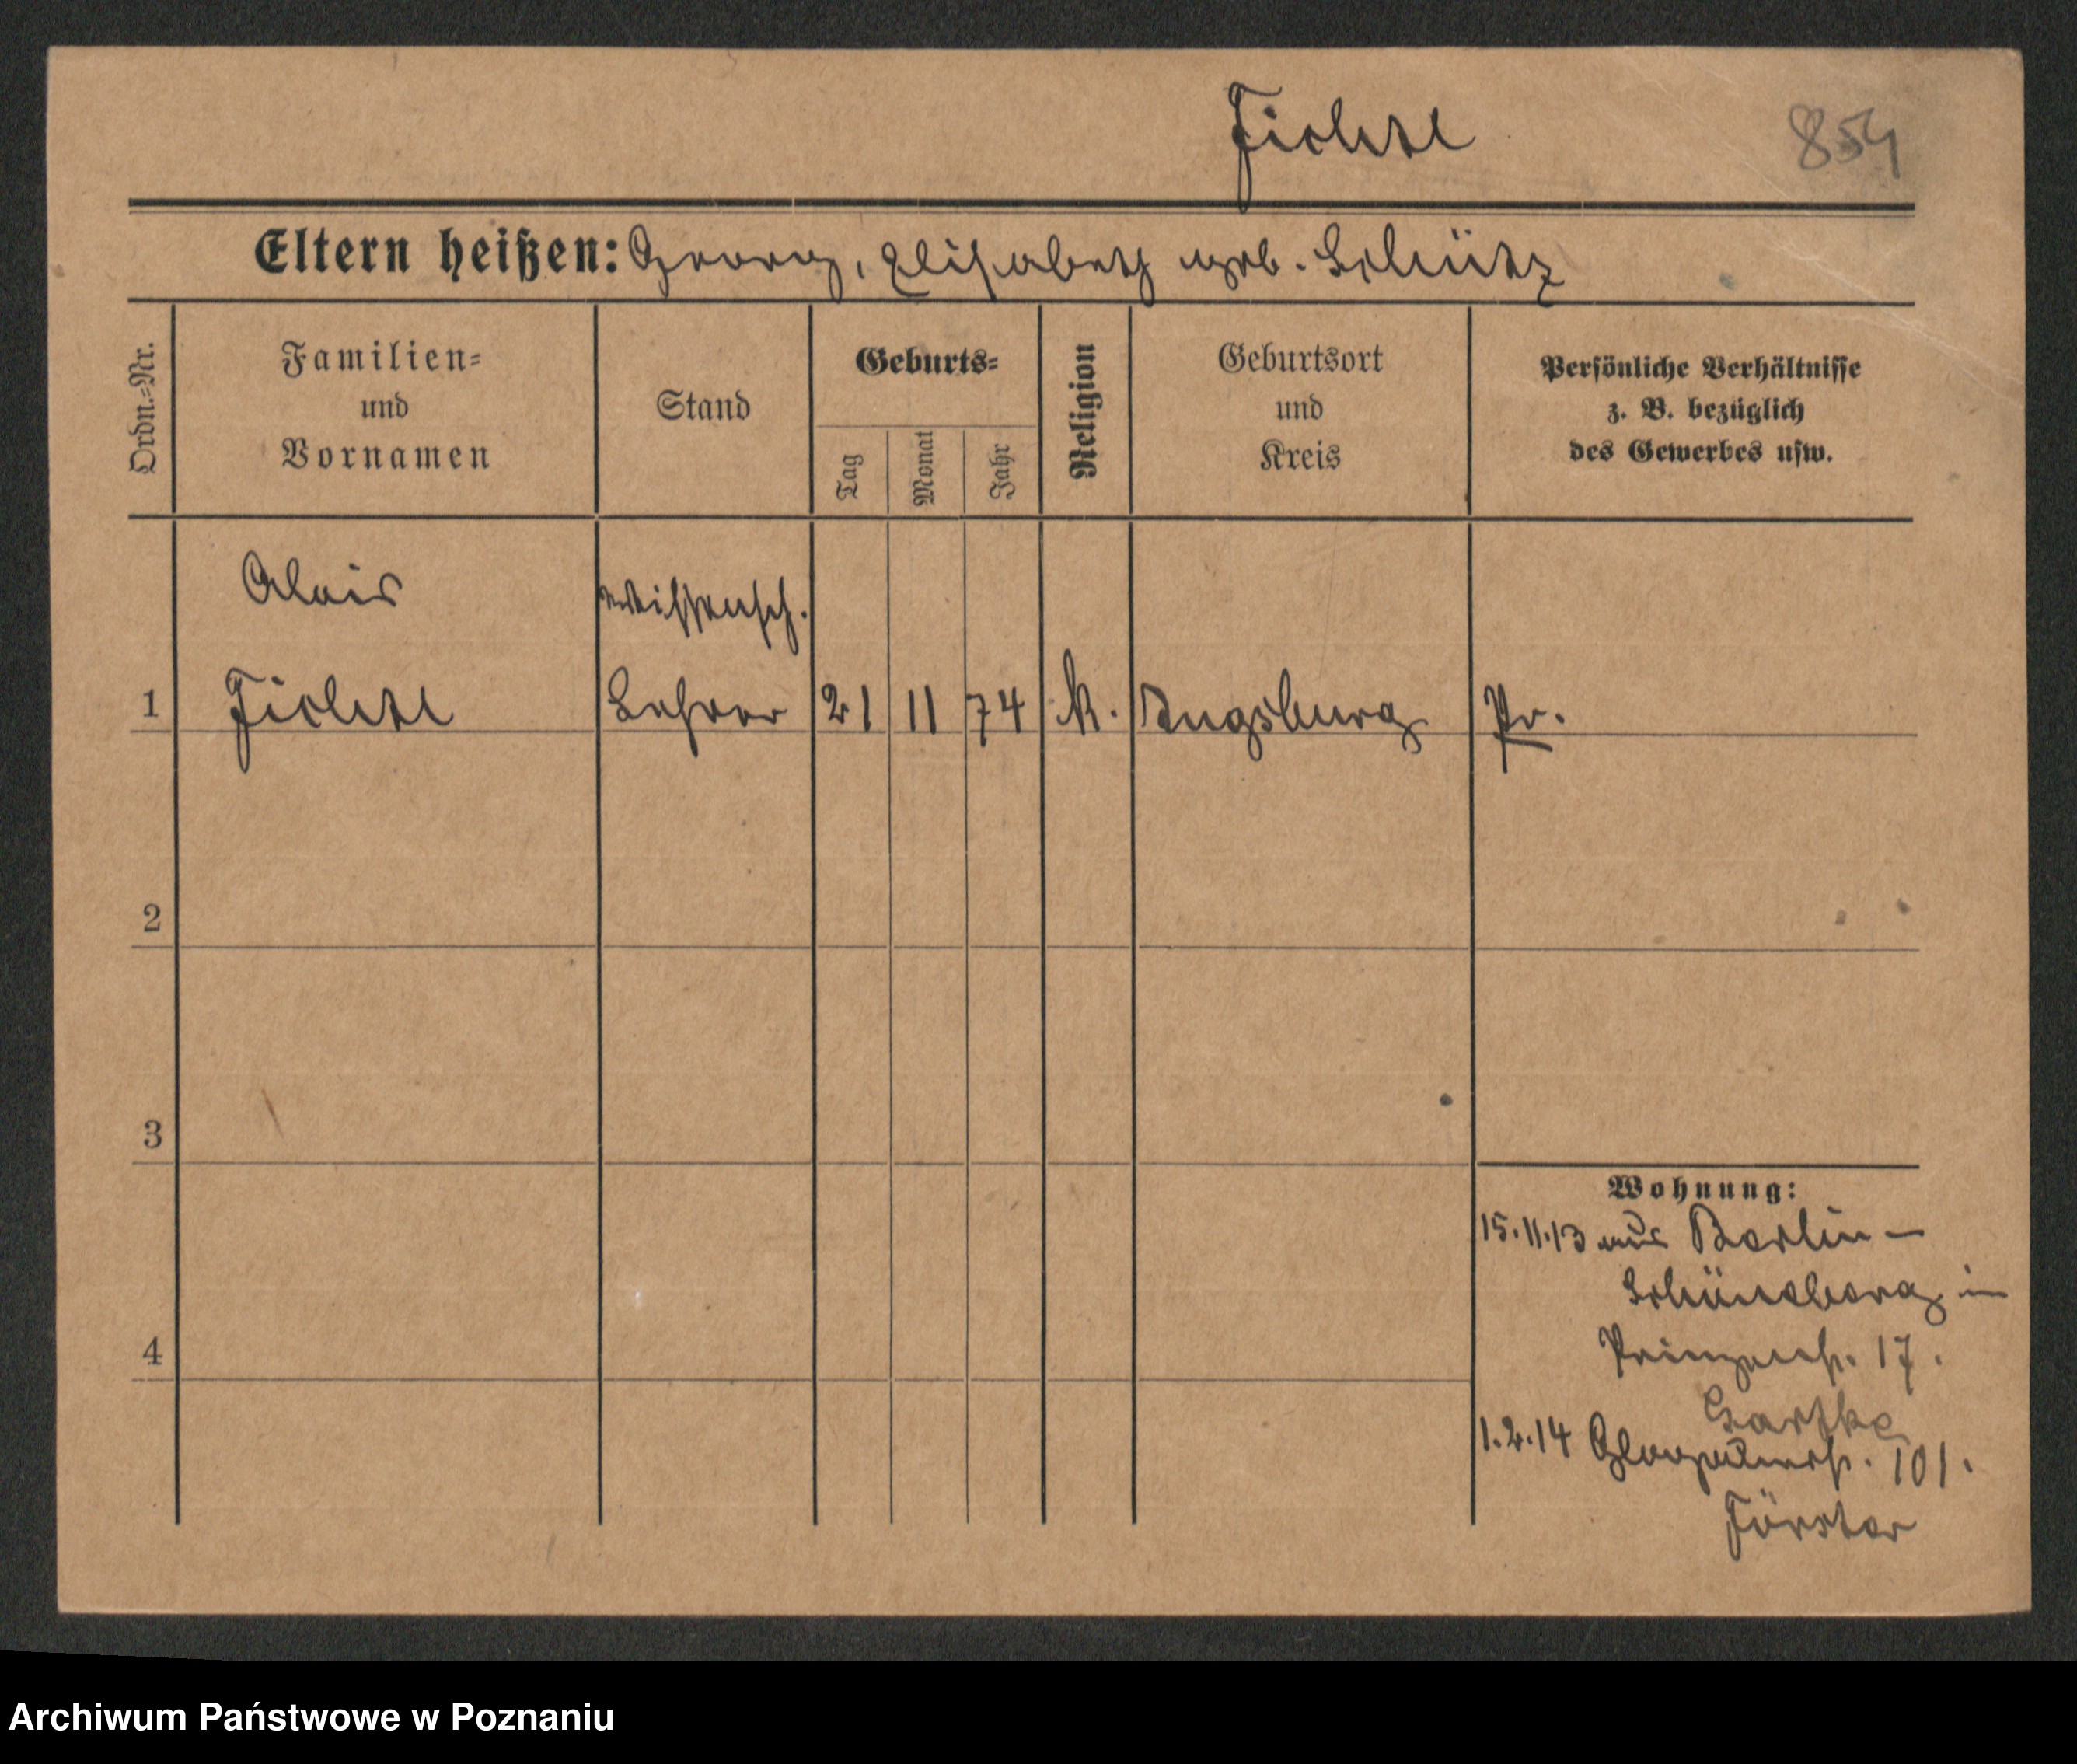 Fichtl
854
Eltern heißen: Georg, Elisabeth geb. Schütz
Ordn.-Nr.
Familien- und Vornamen
Stand
Geburts-
Tag
Monat
Jahr
Religion
Geburtsort und Kreis
Persönliche Verhältnisse
z. B. bezüglich
des Gewerbes usw.
Alois
wissensch.
1 Fichtl Lehrer 21 11 74 K. Augsburg Pr.
2
3
4
Wohnung:
15.11.13 aus Berlin-
Schöneberg in
Prinzenstr. 17.
1.2.14 Glogauerstr. 101.
Förster
Archiwum Państwowe w Poznaniu